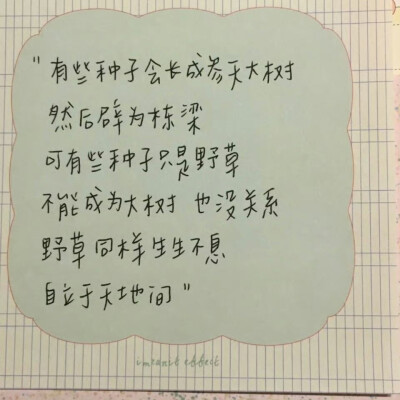 "有些种子会长成参天大树
然后辟为栋梁
可有些种子只是野草
不能成为大树 也没关系
野草同样生生不息
自立于天地间"